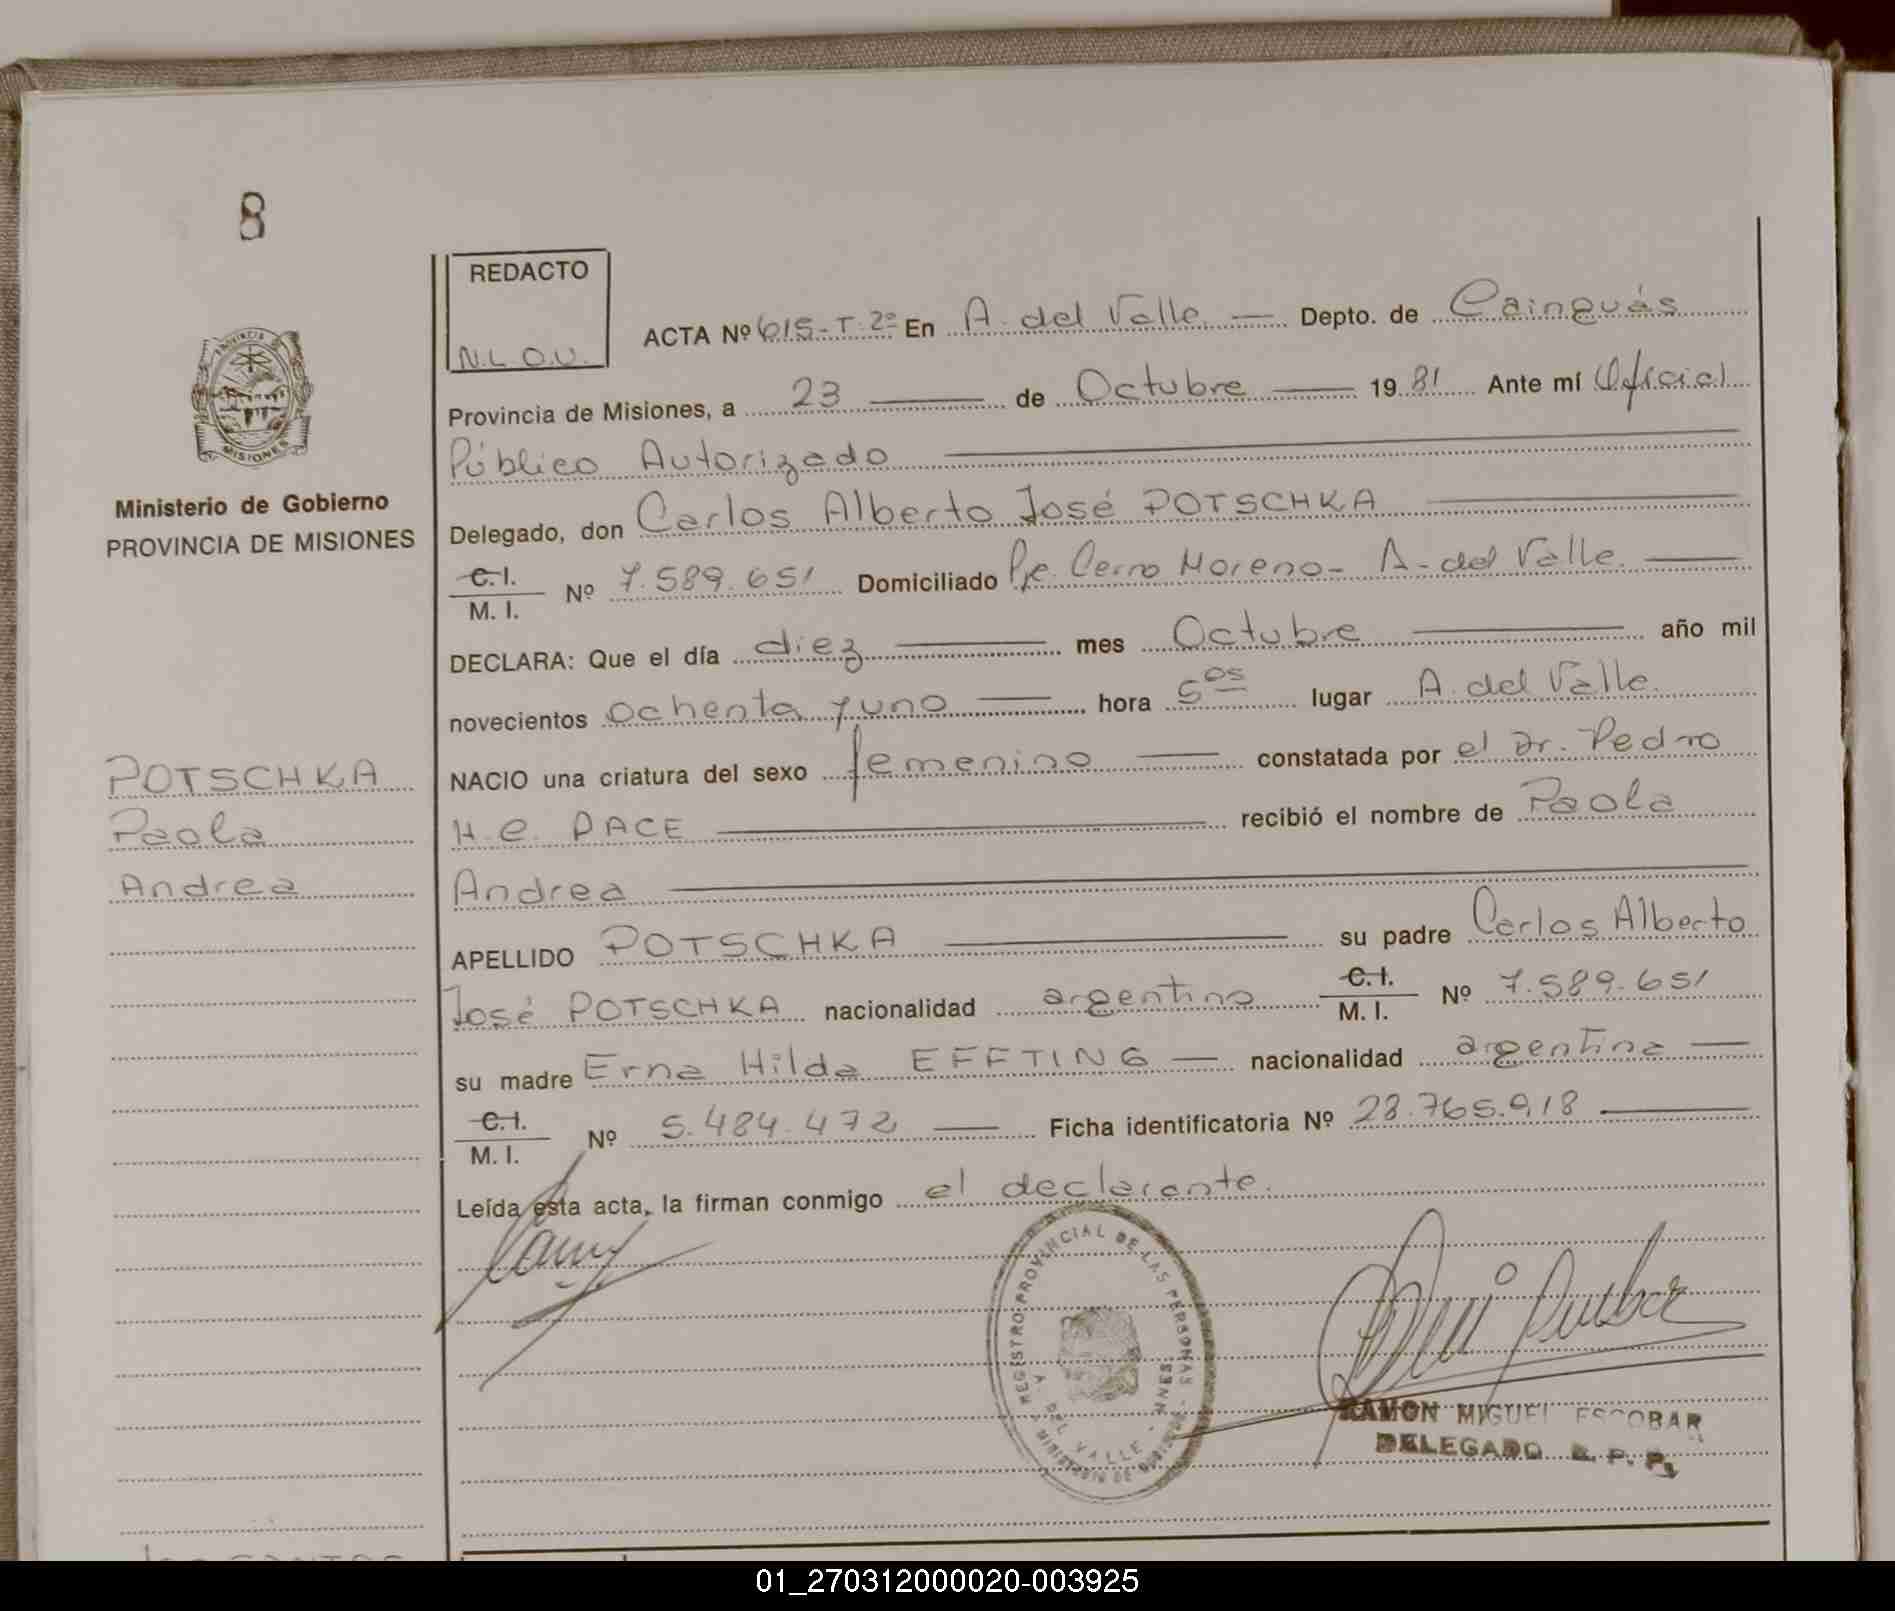 8
REDACTO
N.L.O.U.
ACTA Nº 615-T.2º En A. del Valle — Depto. de Cainguás
Provincia de Misiones, a 23 — de Octubre — 1981 Ante mí Oficial
Público Autorizado
Delegado, don Carlos Alberto José POTSCHKA
C.I.
M. I. Nº 7.589.651 Domiciliado Pje. Cerro Moreno - A. del Valle.
DECLARA: Que el día diez — mes Octubre — año mil
novecientos ochenta y uno — hora 5 05 lugar A. del Valle.
NACIO una criatura del sexo femenino — constatada por el Dr. Pedro
H.C. PACE — recibió el nombre de Paola
Andrea
APELLIDO POTSCHKA — su padre Carlos Alberto
José POTSCHKA nacionalidad argentino C.I.
M. I. Nº 7.589.651
su madre Erna Hilda EFFTING — nacionalidad argentina —
C.I.
M. I. Nº 5.484.472 — Ficha identificatoria Nº 28.765.918 —
Leída esta acta, la firman conmigo el declarante.
PROVINCIA DE
MISIONES
Ministerio de Gobierno
PROVINCIA DE MISIONES
POTSCHKA
Paola
Andrea
REGISTRO PROVINCIAL DE LAS PERSONAS
A. DEL VALLE - MNES
MINISTERIO DE GOBIERNO
RAMON MIGUEL ESCOBAR
DELEGADO R. P. P.
01_270312000020-003925